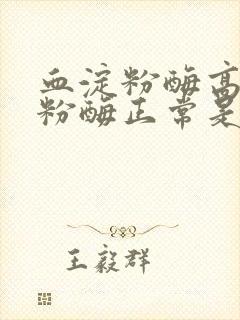 血淀粉酶高
粉酶正常是
王毅群